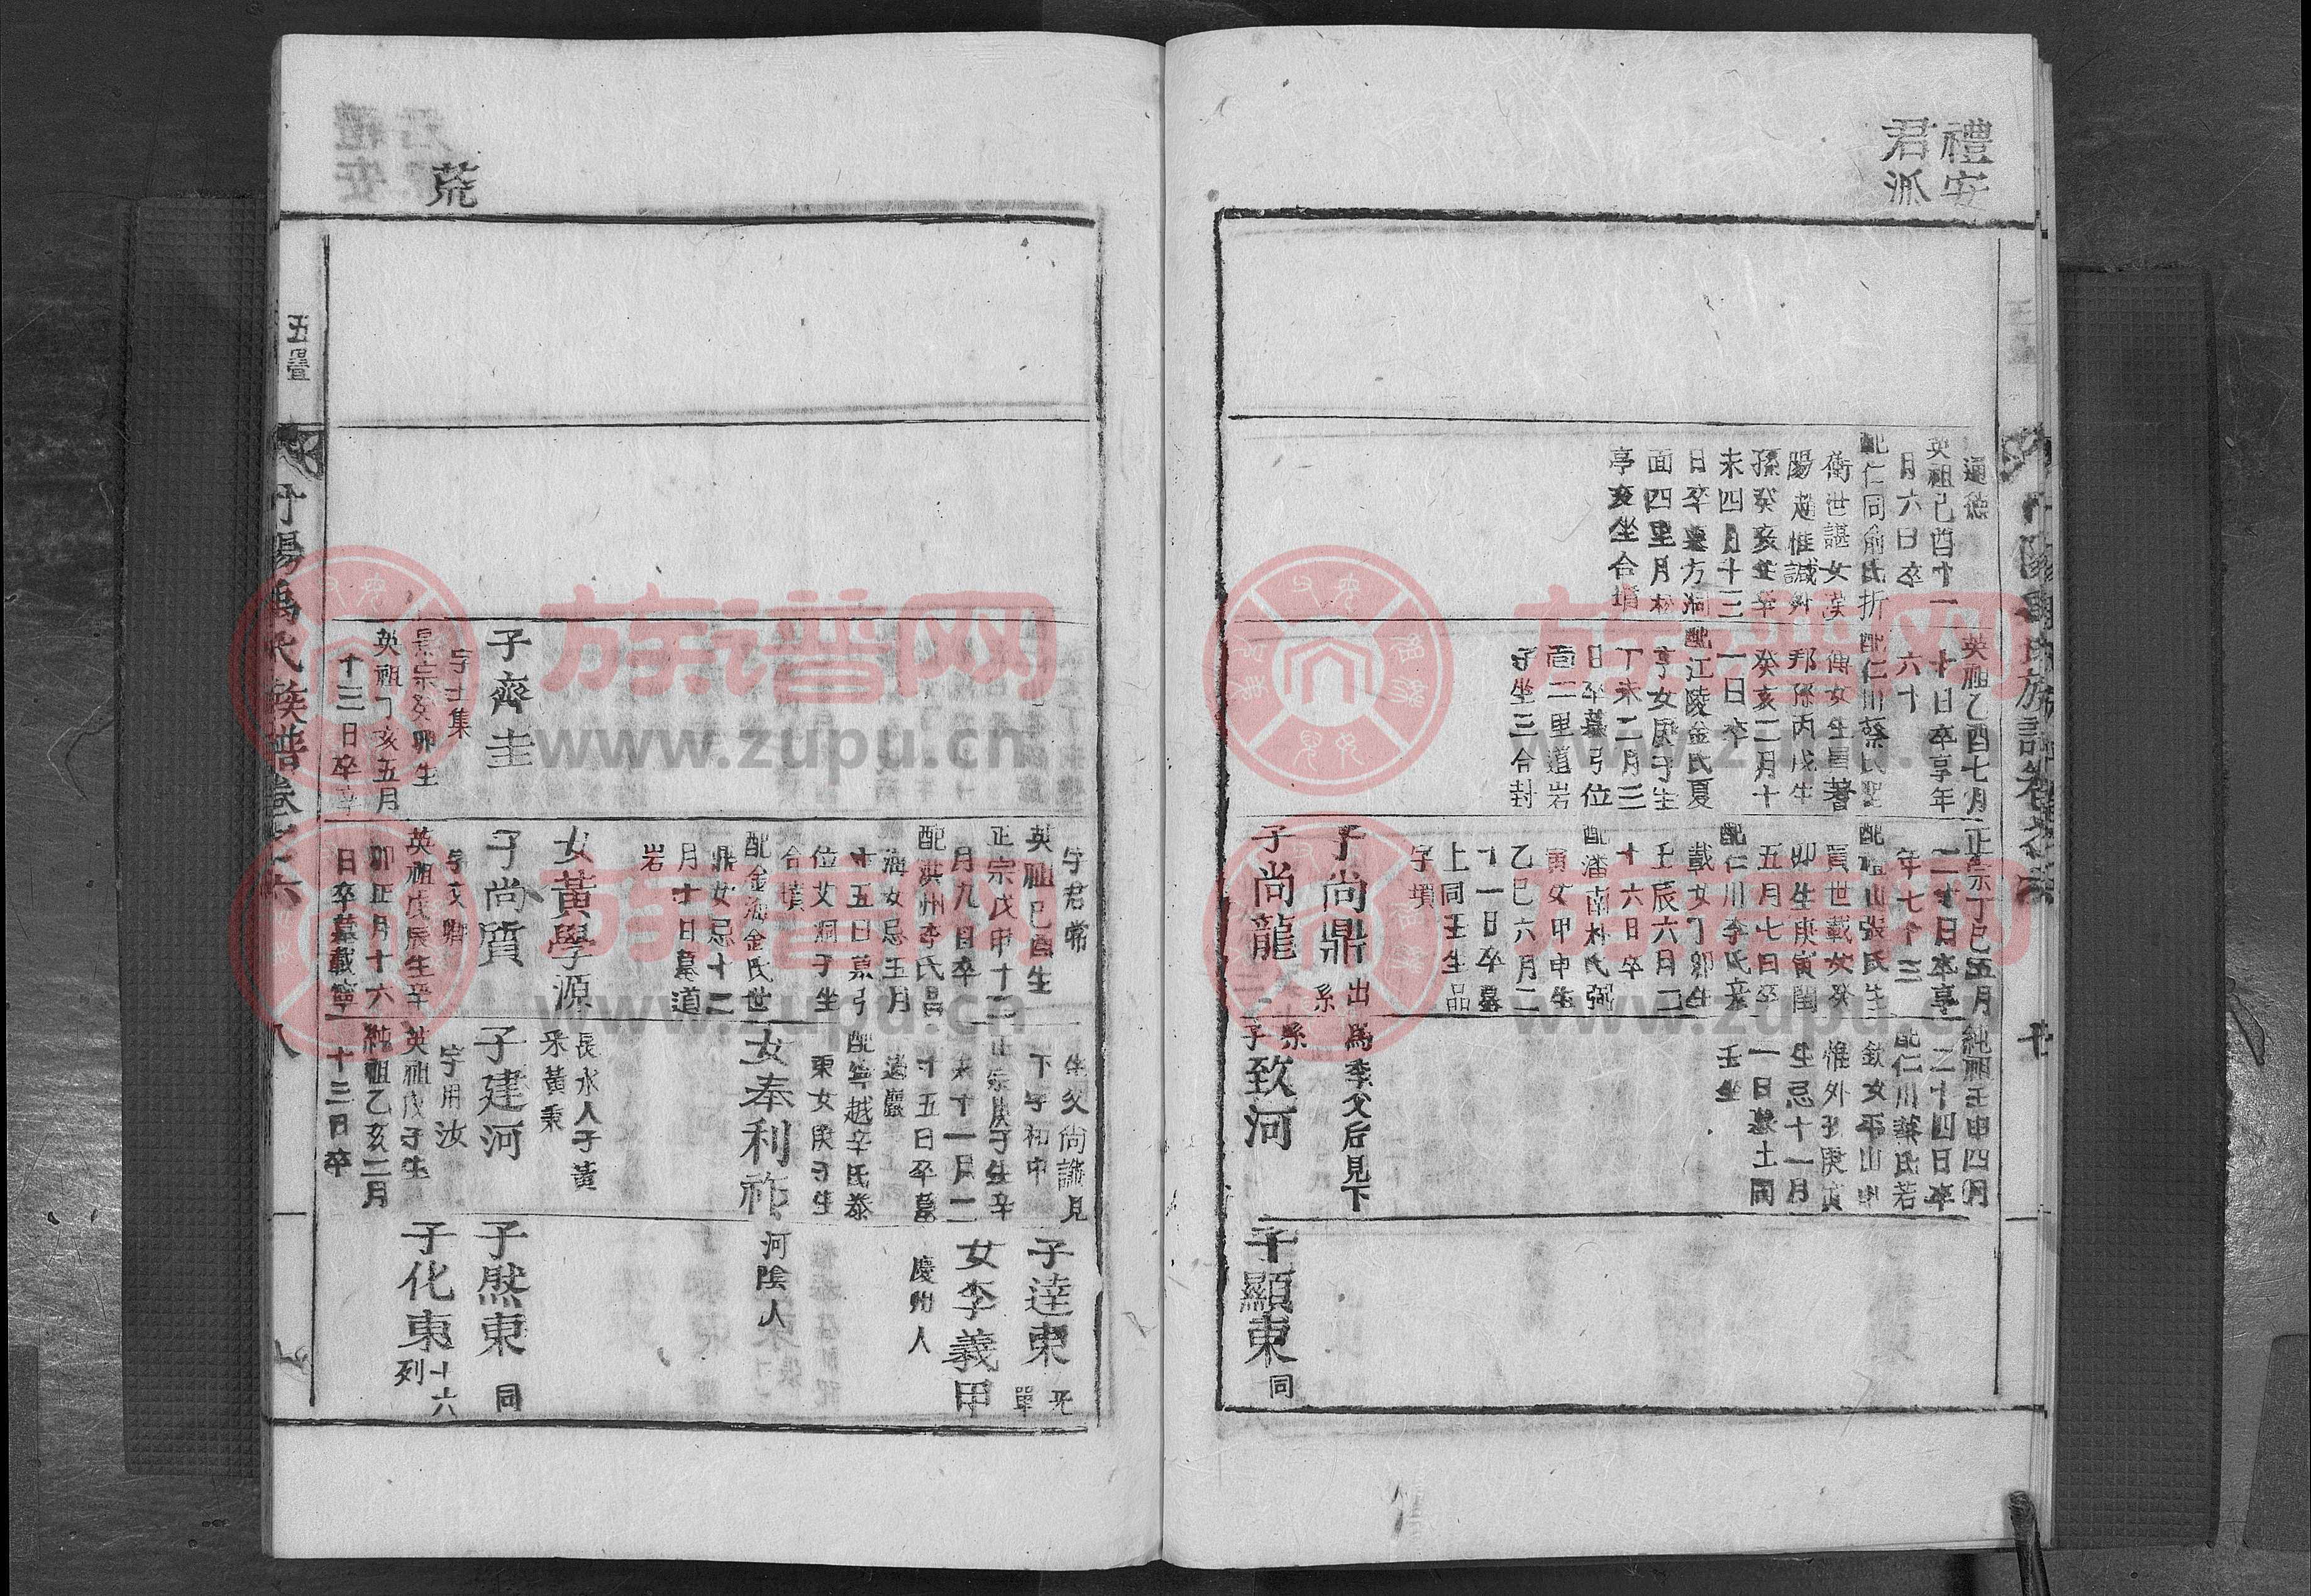 禮安
君派
通德
英祖己酉十一
月六日卒
配仁同俞氏折
衝世諶女漢
陽趙惟誠外
孫癸亥生辛
未四月十三
日卒墓方洞
面四里月
亭亥坐合墳
英祖乙酉七月
十日卒享年
六十
配仁川蔡氏聖
傅女生員著
邦孫丙戌生
癸亥二月十
一日卒
配江陵金氏夏
亨女庚子生
丁未二月三
日卒墓弓位
面二里道岩
子坐三合封
正宗丁巳五月
二十日卒享
年七十三
配祖山張氏生
員世載女癸
卯生庚寅閏
五月七日卒
配仁川李氏彦
載女丁卯生
壬辰六月二
十六日卒
配潘南朴氏弼
寅女甲申生
乙巳六月二
十一日卒墓
上同壬坐品
字墳
子尚鼎 出系
子尚龍
純祖壬申四月
二十四日卒
配仁川蔡氏若
欽女平山申
惟外孫庚寅
生忌十一月
一日墓土間
壬坐
為季父后見下
系子致河
子顯東 同
荒
子齊圭
字士集
景宗癸卯生
英祖丁亥五月
十三日卒
字君常
英祖己酉生
正宗戊申十二
月九日卒
配洪州李氏昌
海女忌五月
十五日墓弓
位艾洞子坐
合墳
配金海金氏世
鼎女忌十二
月十日墓道
岩
女黃學源
子尚質
英祖戊辰生辛
卯正月十六
日卒墓載寧
生父尚謙見
下字和中
正宗庚子生辛
未十一月二
十五日卒墓
道巖
配寧越辛氏泰
東女庚子生
女奉利祚 河陰人
長水人子黃
釆黃秉
子建河
字用汝
英祖戊子生
純祖乙亥二月
十三日卒
子達東 單
女李義甲
慶州人
子然東 同
子化東 十六列
五疊
丹陽禹氏族譜卷之六
八
www.zupu.cn
族谱网
www.zupu.cn
族谱网
www.zupu.cn
族谱网
www.zupu.cn
族谱网